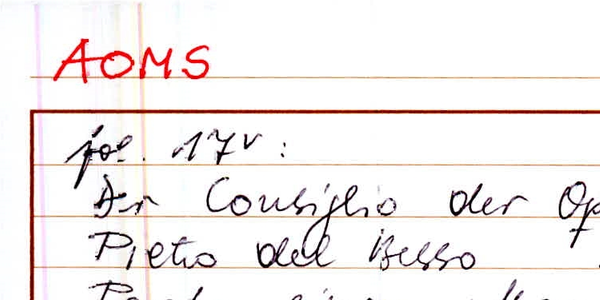 AOMS
fol. 17v:
Der Consiglio der Op
Pietro del Basso